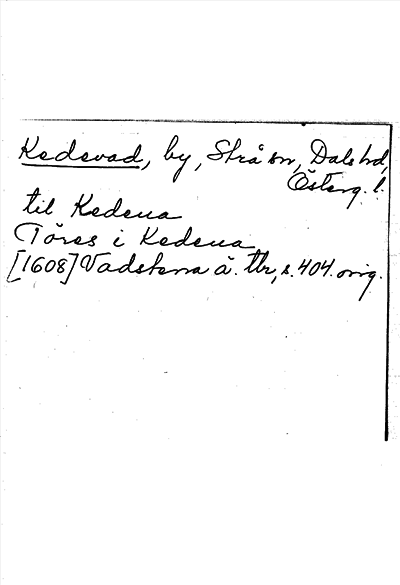 Kedevad, by, Strå sn, Dals hd,
Österg. l.
til Kedeua
Töres i Kedeua
[1608] Vadstena ä. tbr, s. 404. orig.